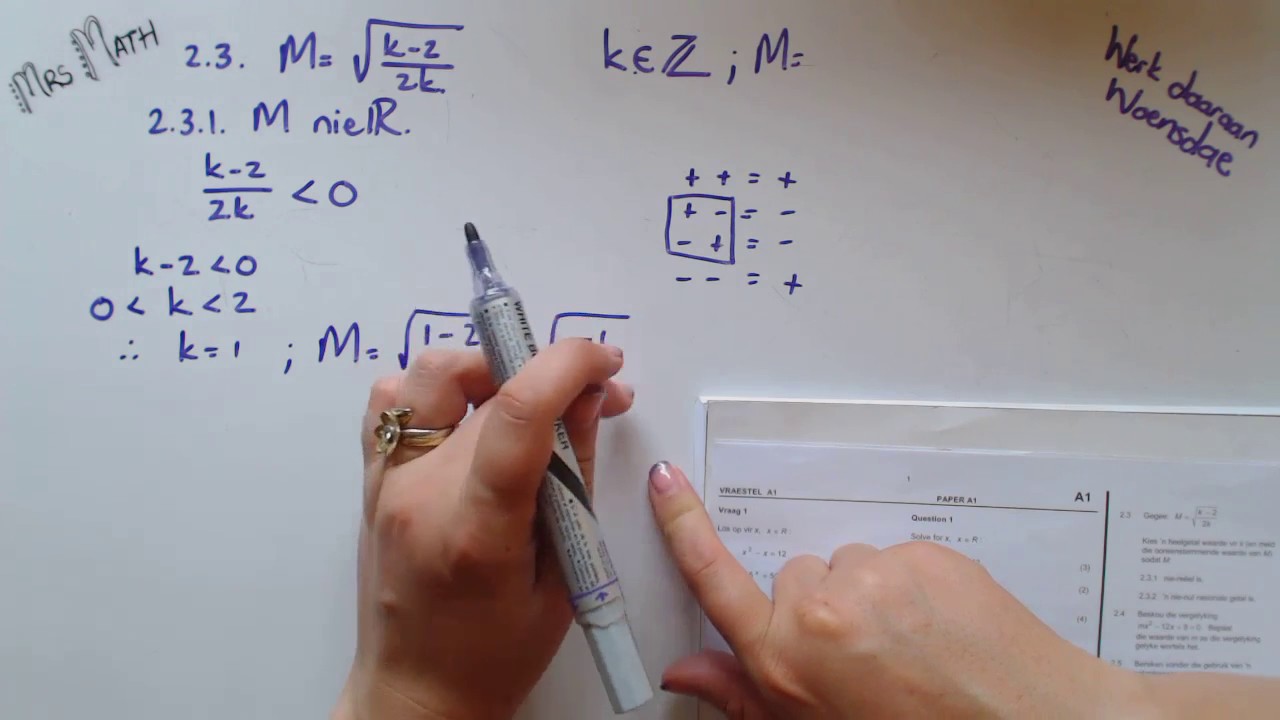 MRS MATH
2.3. M = √((k-2)/(2k)) k ∈ ℤ ; M =
2.3.1. M nie ℝ.
(k-2)/(2k) < 0
k - 2 < 0
0 < k < 2
∴ k = 1 ; M = √(1-2 √(-1
+ + = +
+ - = -
- + = -
- - = +
Werk daaraan
Woensdae
1
VRAESTEL A1 PAPER A1 A1
Vraag 1 Question 1
Los op vir x, x ∈ R : Solve for x, x ∈ R :
x² - x = 12
(3)
(2)
(4)
2.3 Gegee: M = √((k-2)/(2k))
Kies 'n heelgetal waarde vir k (en meld
die ooreenstemmende waarde van M)
sodat M
2.3.1 nie-reëel is.
2.3.2 'n nie-nul rasionale getal is.
2.4 Beskou die vergelyking
mx² - 12x + 8 = 0. Bepaal
die waarde van m as die vergelyking
gelyke wortels het.
2.5 Bereken sonder die gebruik van 'n